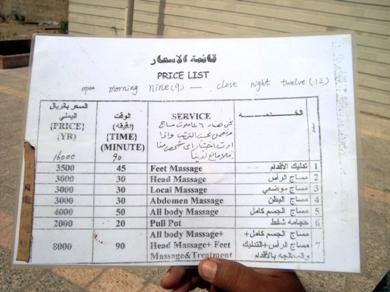 قائمة الاسعار
PRICE LIST
open morning nine (9) — close night twelve (12)
السعر بالريال اليمني {PRICE} (YR) الوقت (دقيقة) {TIME} (MINUTE) SERVICE الخدمة
16000 90
3500 45 Feet Massage تدليك الأقدام 1
3000 30 Head Massage مساج الرأس 2
3000 30 Local Massage مساج موضعي 3
3000 30 Abdomen Massage مساج البطن 4
4000 50 All body Massage مساج الجسم كامل 5
2000 20 Pull Pot حجامه شفط 6
8000 90 All body Massage+ Head Massage+ Feet Massage&Treatment مساج الجسم كامل+ مساج الرأس+التدليك والمعالجه بالأقدام 7